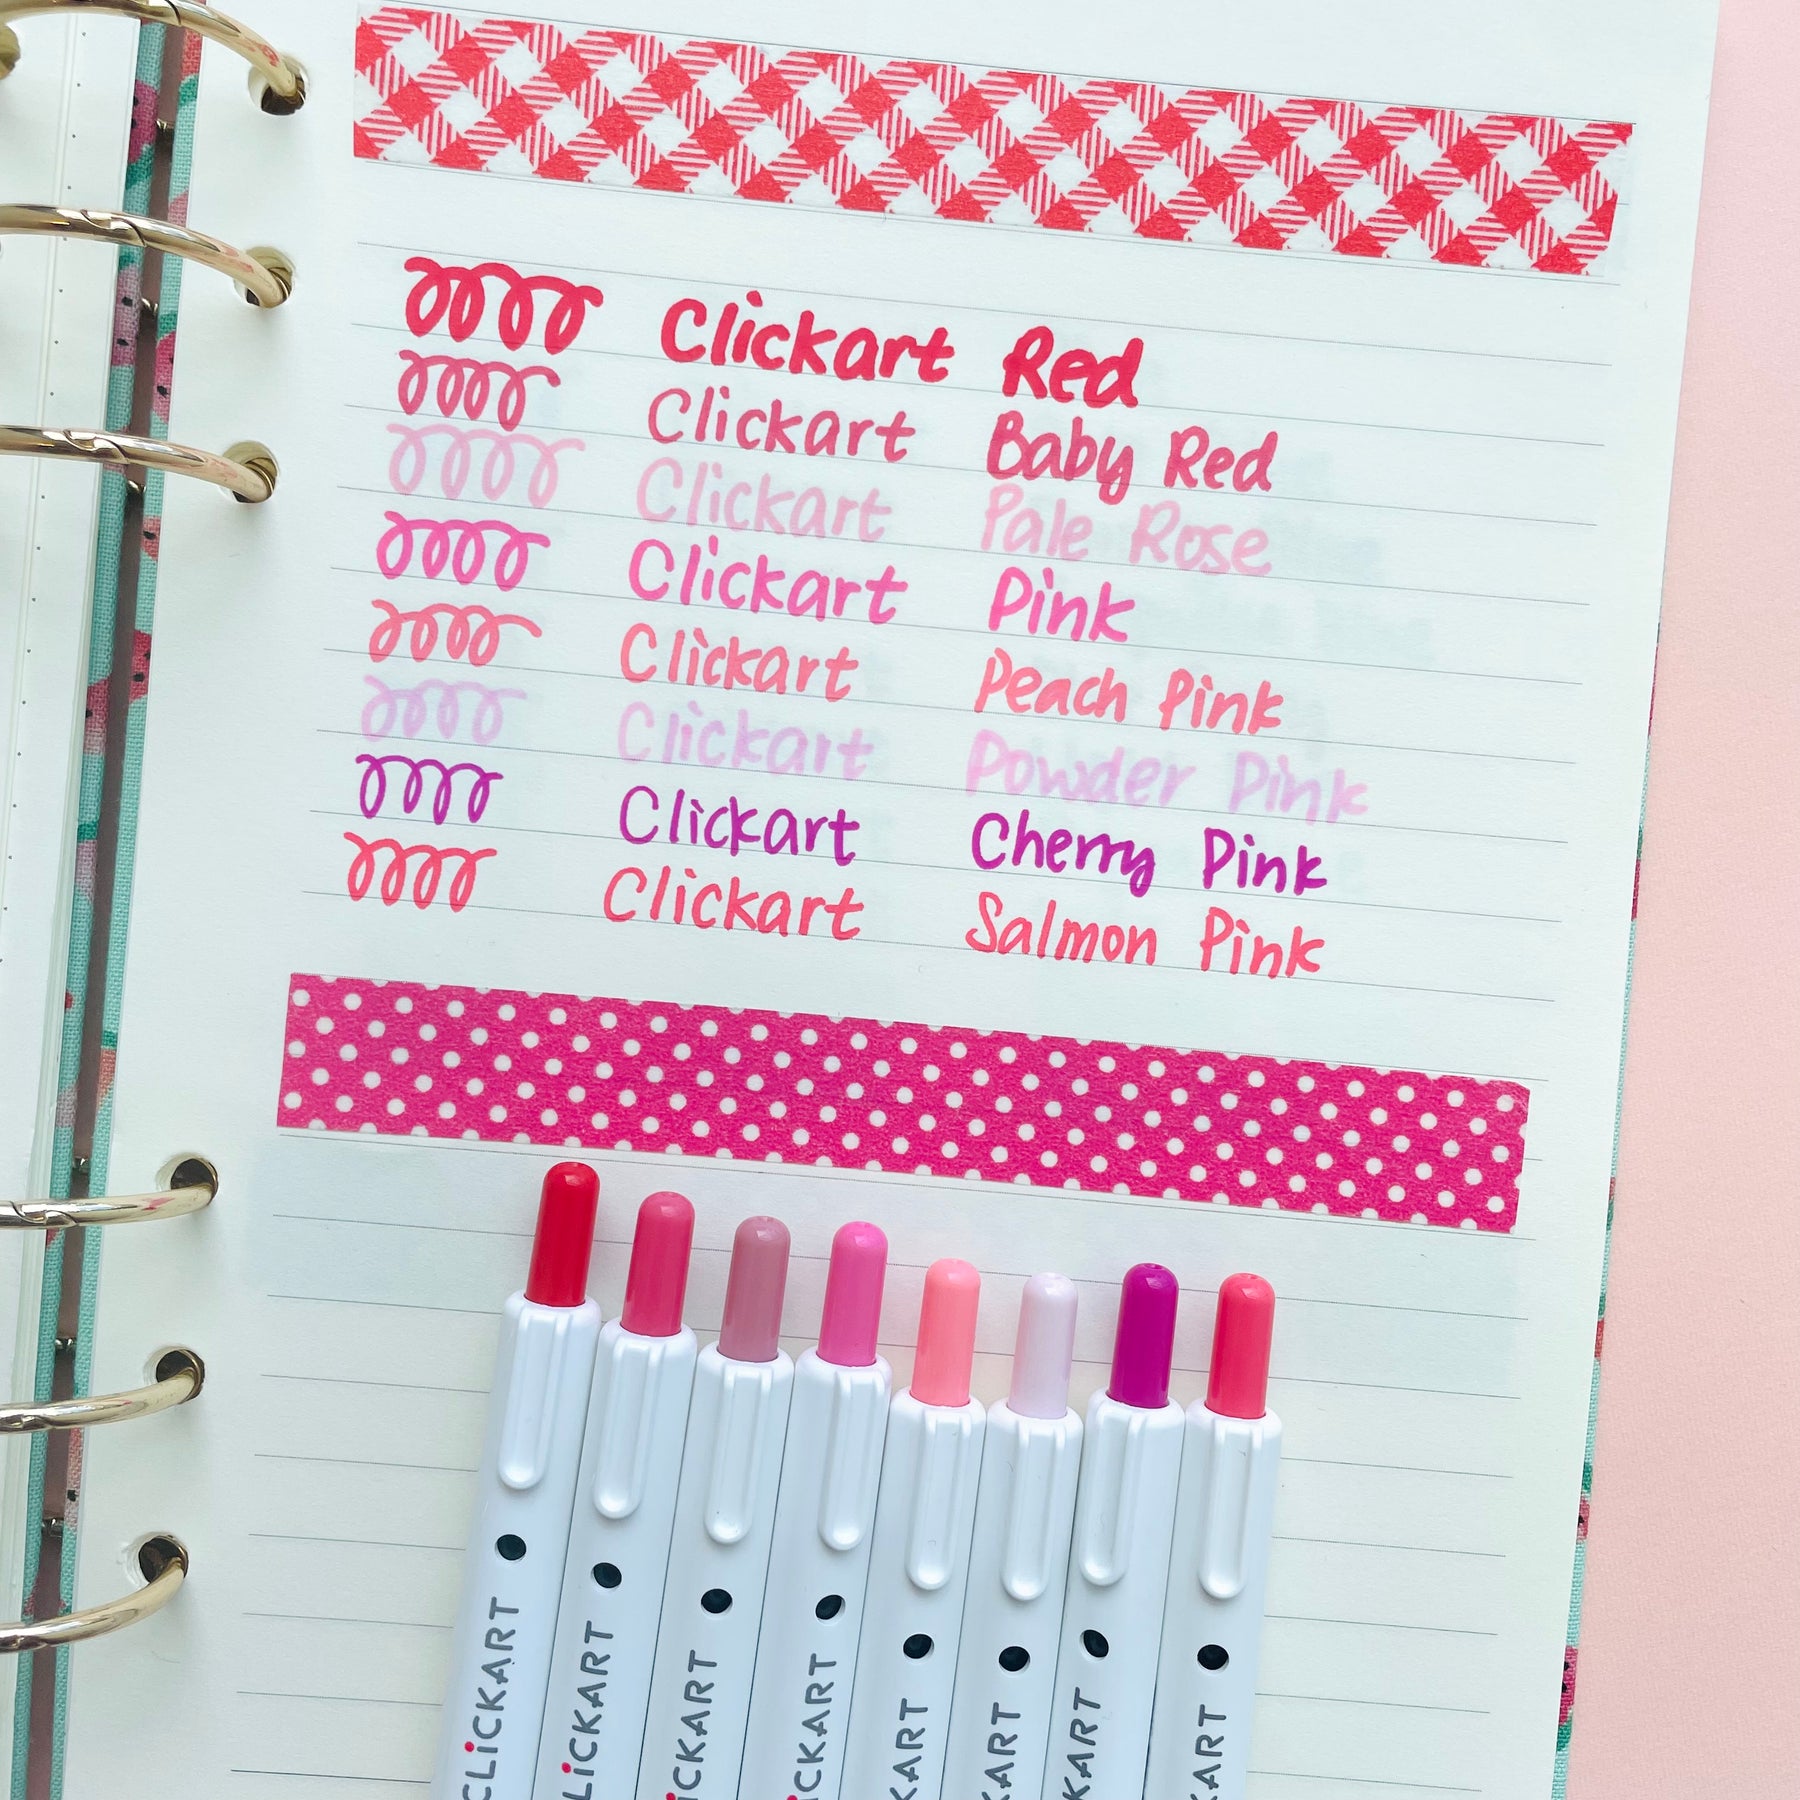 Clickart Red
Clickart Baby Red
Clickart Pale Rose
Clickart Pink
Clickart Peach Pink
Clickart Powder Pink
Clickart Cherry Pink
Clickart Salmon Pink
CLiCKART
LiCKART
iCKART
iCKART
KART
KART
KART
KART